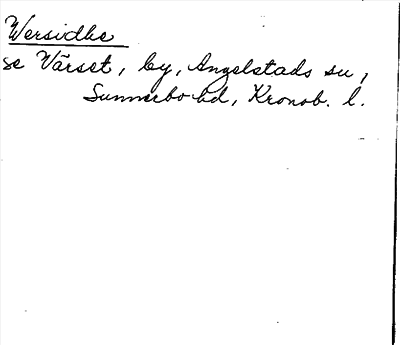 Wersidhe
se Värset, by, Angelstads su,
Sunnerbo hd, Kronob. l.